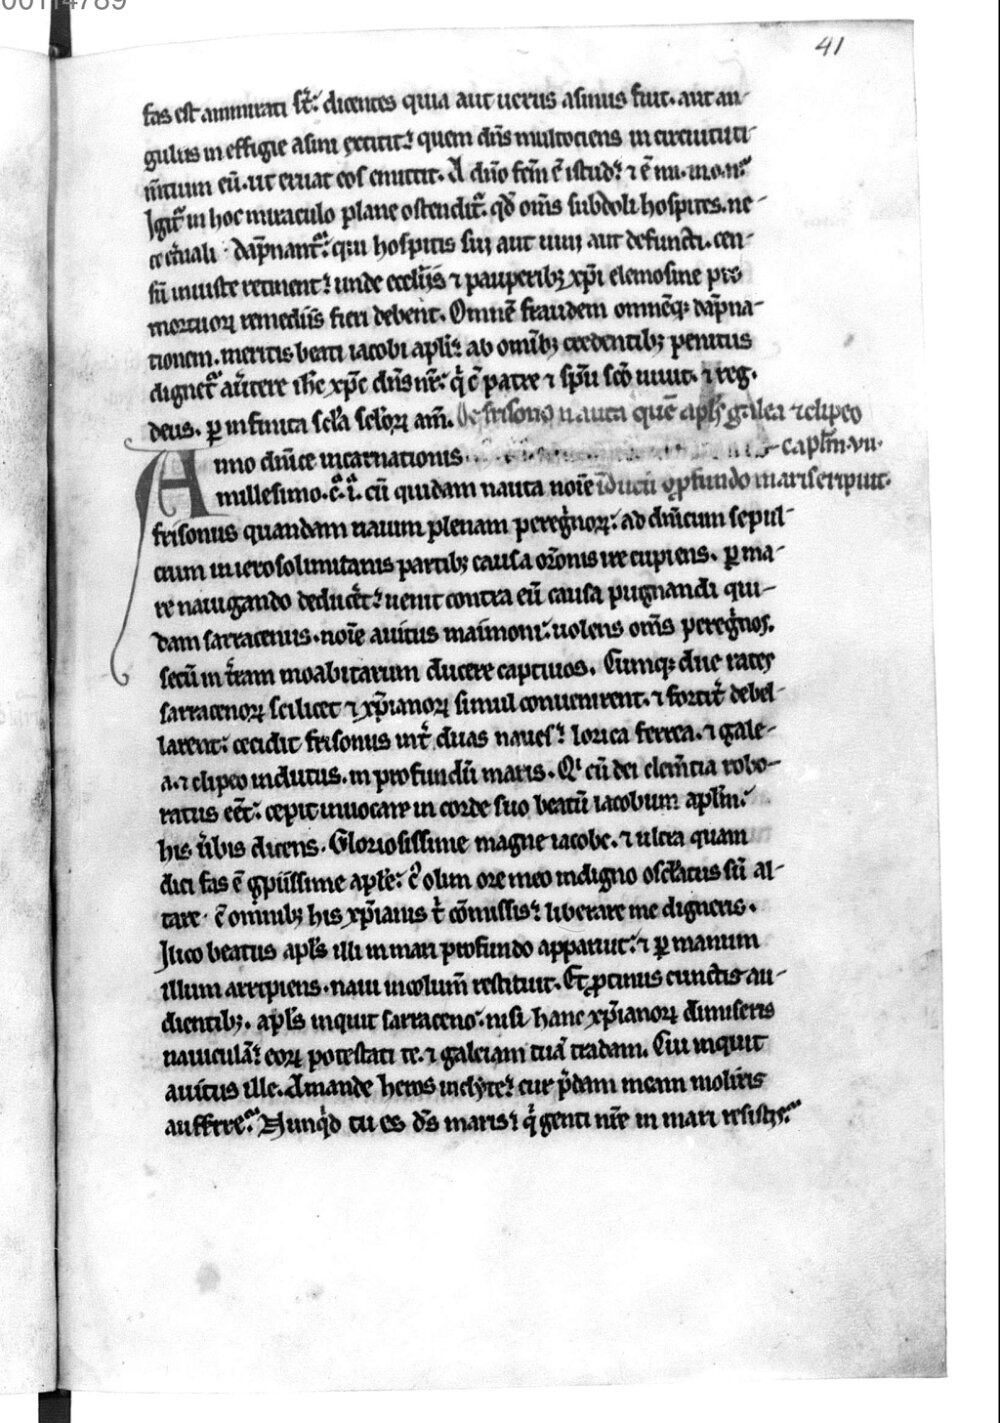 00114789
41
fas est ammirati st̄. dicentes quia aut uerus asinus fuit. aut an-
gulus in effigie asini extitit. quem dn̄s multociens in circuitu ti-
m̄tium eū. ut eruat eos emittit. A dn̄o fc̄m ē istud. ⁊ ē mi. in o. n.
Igit̄ in hoc miraculo plane ostendit̄. qd̄ om̄s subdoli hospites. ne-
ce et̄nali dāpnant̄. qui hospitis sui aut uiui aut defuncti. cen-
sū iniuste retinent. unde eccl̄iis ⁊ pauperibꝫ xp̄i elemosine pro
mortuoꝝ remediis fieri debent. Omnē fraudem omnēqꝫ dāpna-
tionem. meritis beati iacobi apl̄i. ab om̄ibꝫ credentibꝫ penitus
dignet̄ au̾tere ih̄c xp̄c dn̄s nr̄. qⁱ c̄ patre ⁊ sp̄u sc̄o uiuit. ⁊ reg.
deus. ꝑ infinita scl̄a scl̄oꝝ am̄. De frisono nauta quē apl̄s galea ⁊ clipeo
Anno dn̄ice incarnationis capl̄m. vii.
millesimo. c̊. i̊. cū quidam nauta noīe īdutū ꝓfundo maris eripuit.
frisonus quandam nauim plenam peregⁱnoꝝ. ad dn̄icum sepul-
crum in ierosolimitanis partibꝫ causa or̄onis ire cupiens. ꝑ ma-
re nauigando deducer̄t. uenit contra eū causa pugnandi qui-
dam sarracenus. noīe auitus maimoni. uolens om̄s peregⁱnos.
secū in t̄ram moabitarum ducere captiuos. Cumqꝫ due rates
sarracenoꝝ scilicet ⁊ xp̄ianoꝝ simul conuenirent. ⁊ fortit̄ debel-
larent. cecidit frisonus int̄ duas naues. lorica ferrea. ⁊ gale-
a. ⁊ clipeo indutus. in profundū maris. Qⁱ cū dei clem̄tia robo-
ratus eēt. cepit inuocare in corde suo beatū iacobum apl̄m.
his ūbis dicens. Gloriosissime magne iacobe. ⁊ ultra quam
dici fas ē ꝗpiissime apl̄e. c̄ olim ore meo indigno oscl̄atus sū al-
tare. c̄ omnibꝫ his xp̄ianis t̄ cōmissis. liberare me digneris.
Ilico beatus apl̄s illi in mari profundo apparuit. ⁊ ꝑ manum
illum arripiens. naui incolum̄ restituit. Et ꝓtinus cunctis au-
dientibꝫ. apl̄s inquit sarraceno. nisi hanc xp̄ianoꝝ dimiseris
nauiculā. eoꝝ potestati te. ⁊ galeiam tuā tradam. Cui inquit
auitus ille. Amande heros inclyte. cur p̄dam meam moliris
aufferre. Nunqⁱd tu es ds̄ maris. qⁱ genti nr̄e in mari resistis.